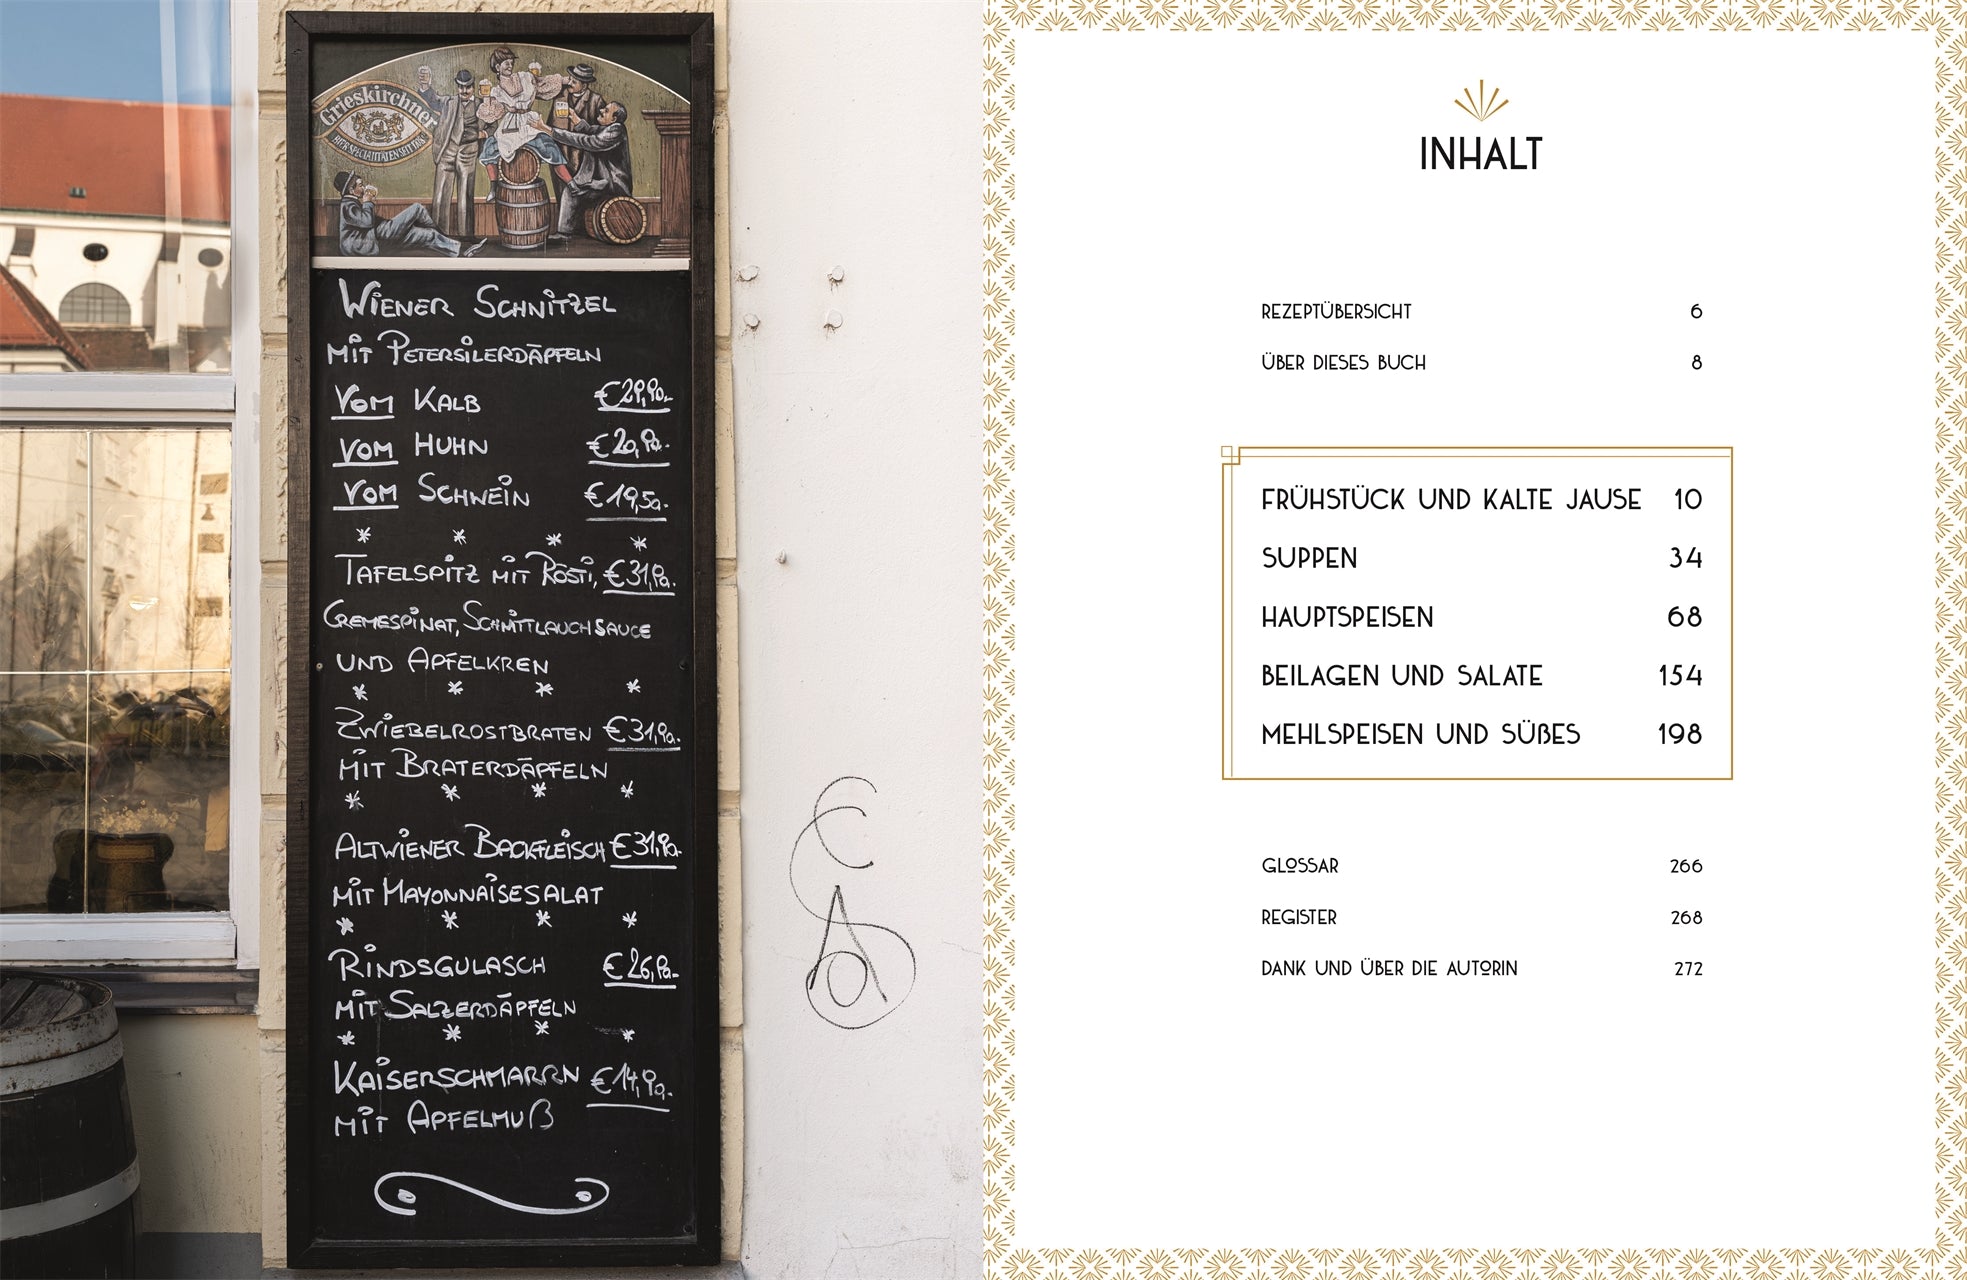 Grieskirchner
WIENER SCHNITZEL
MIT PETERSILERDÄPFELN
VOM KALB €29,90.-
VOM HUHN €20,90.-
VOM SCHWEIN €19,50.-
TAFELSPITZ MIT RÖSTI, €31,90.-
CREMESPINAT, SCHNITTLAUCHSAUCE
UND APFELKREN
ZWIEBELROSTBRATEN €31,90.-
MIT BRATERDÄPFELN
ALTWIENER BACKFLEISCH €31,90.-
MIT MAYONNAISESALAT
RINDSGULASCH €26,90.-
MIT SALZERDÄPFELN
KAISERSCHMARRN €14,90.-
MIT APFELMUß
INHALT
REZEPTÜBERSICHT 6
ÜBER DIESES BUCH 8
FRÜHSTÜCK UND KALTE JAUSE 10
SUPPEN 34
HAUPTSPEISEN 68
BEILAGEN UND SALATE 154
MEHLSPEISEN UND SÜßES 198
GLOSSAR 266
REGISTER 268
DANK UND ÜBER DIE AUTORIN 272